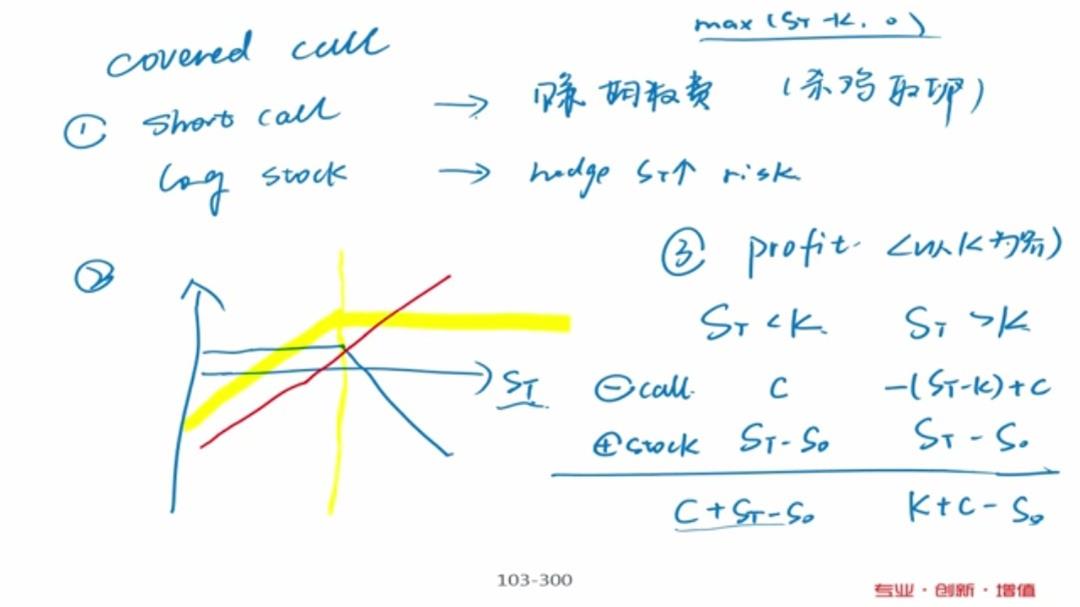 max(S_T-K, 0)
covered call
① short call → 赚期权费 (杀鸡取卵)
long stock → hedge S_T↑ risk
② 
③ profit <以K为界)
S_T<K S_T>K
⊖call C -(S_T-K)+C
⊕stock S_T-S_0 S_T-S_0
C+S_T-S_0 K+C-S_0
S_T
103-300
专业·创新·增值